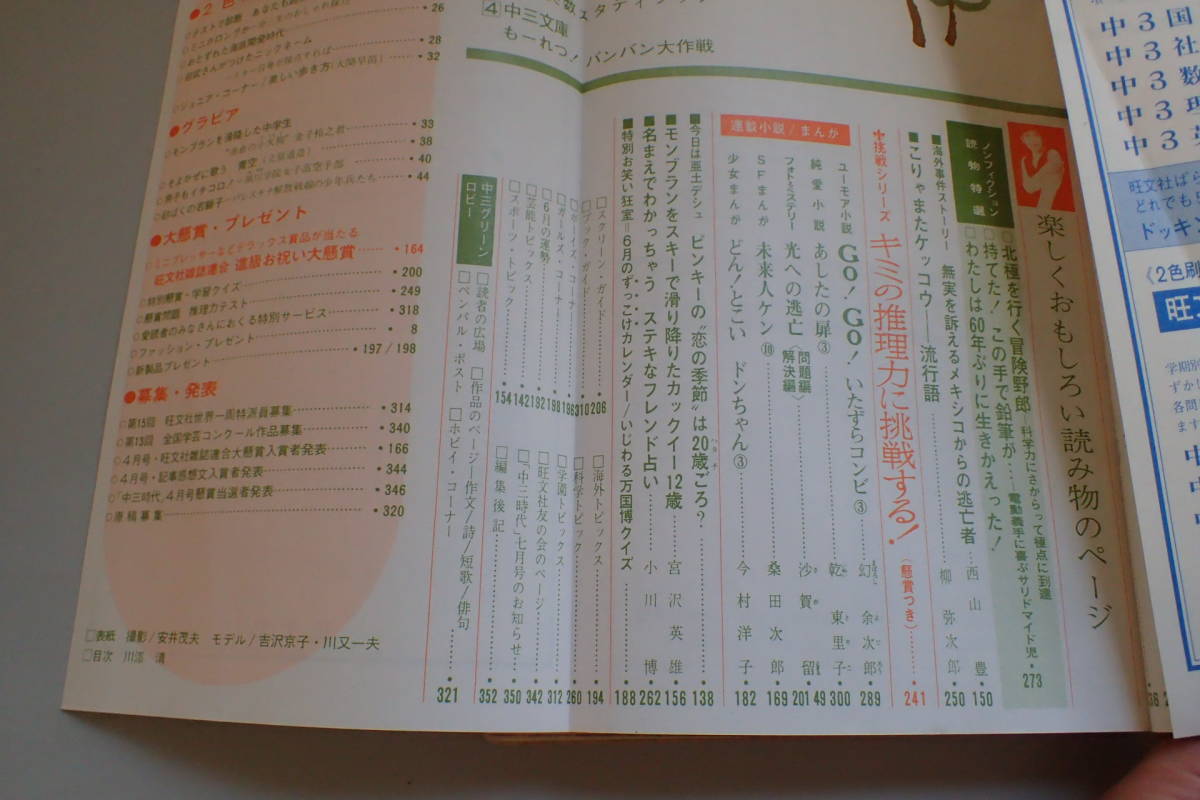 ④中三文庫
もーれつ!バンバン大作戦
楽しくおもしろい読み物のページ
ノンフィクション
読物特選
□北極を行く冒険野郎—科学力にさからって極点に到達
□持てた!この手で鉛筆が……電動義手に喜ぶサリドマイド児・273
□わたしは60年ぶりに生きかえった!…西山 豊・150
■海外事件ストーリー 無実を訴えるメキシコからの逃亡者…柳 弥次郎・250
■こりゃまたケッコウ——流行語
挑戦シリーズ キミの推理力に挑戦する!(懸賞つき)……・241
連載小説/まんが
ユーモア小説 GO!GO!いたずらコンビ③…幻 余次郎・289
純愛小説 あしたの扉③…乾 東里子・300
フォトミステリー 光への逃亡〈問題編 解決編〉…沙賀 留・201 49
SFまんが 未来人ケン⑩…桑田次郎・169
少女まんが どん!とこい ドンちゃん③…今村洋子・182
■今日は亜土デシュ ピンキーの“恋の季節”は20歳ごろ?…・138
■モンブランをスキーで滑り降りたカックイー12歳…宮沢英雄・156
■名まえでわかっちゃう ステキなフレンド占い…小川 博・262
■特別お笑い狂室=6月のずっこけカレンダー/いじわる万国博クイズ・188
□スクリーン・ガイド…206
□ブック・ガイド…310
□ボーイズ・コーナー…186
□ガールズ・コーナー…198
□6月の運勢…192
□芸能トピックス…142
□スポーツ・トピック…154
□海外トピックス…・194
□科学トピック…・260
□学園トピックス…・312
□旺文社友の会のページ…・342
□「中三時代」七月号のお知らせ…・350
□編集後記…・352
中三グリーン
ロビー
□読者の広場 □作品のページ—作文/詩/短歌/俳句
□ペンパル・ポスト □ホビイ・コーナー
・321
●2色
◇テストで診断 あなたも
◇おとずれた海底開発時代
・26
・28
・32
◇ジュニア・コーナー/美しい歩き方(大関早苗)
●グラビア
◇モンブランを滑降した中学生
金子裕之君…・33
◇そよかぜに歌う 青空…・38
◇男子もイチコロ!…女子高空手部…・40
◇砂ばくの若獅子—パレスチナ解放戦線の少年兵たち…・44
●大懸賞・プレゼント
◇ミニプレッサーなどデラックス賞品が当たる
旺文社雑誌連合 進級お祝い大懸賞…・164
◇特別懸賞・学習クイズ…・200
◇懸賞問題 推理力テスト…・249
◇愛読者のみなさんにおくる特別サービス…・318
◇ファッション・プレゼント…・8
◇新製品プレゼント…・197/198
●募集・発表
◇第15回 旺文社世界一周特派員募集…・314
◇第13回 全国学芸コンクール作品募集…・340
◇4月号・旺文社雑誌連合大懸賞入賞者発表…・166
◇4月号・記事感想文入賞者発表…・344
◇「中三時代」4月号懸賞当選者発表…・346
◇原稿募集…・320
□表紙 撮影/安井茂夫 モデル/吉沢京子・川又一夫
□目次 川添 清
中3国
中3社
中3数
中3理
中3
旺文社ばら
どれでも
ドッキ
《2色刷
旺
学期別
ずか
各問
ます